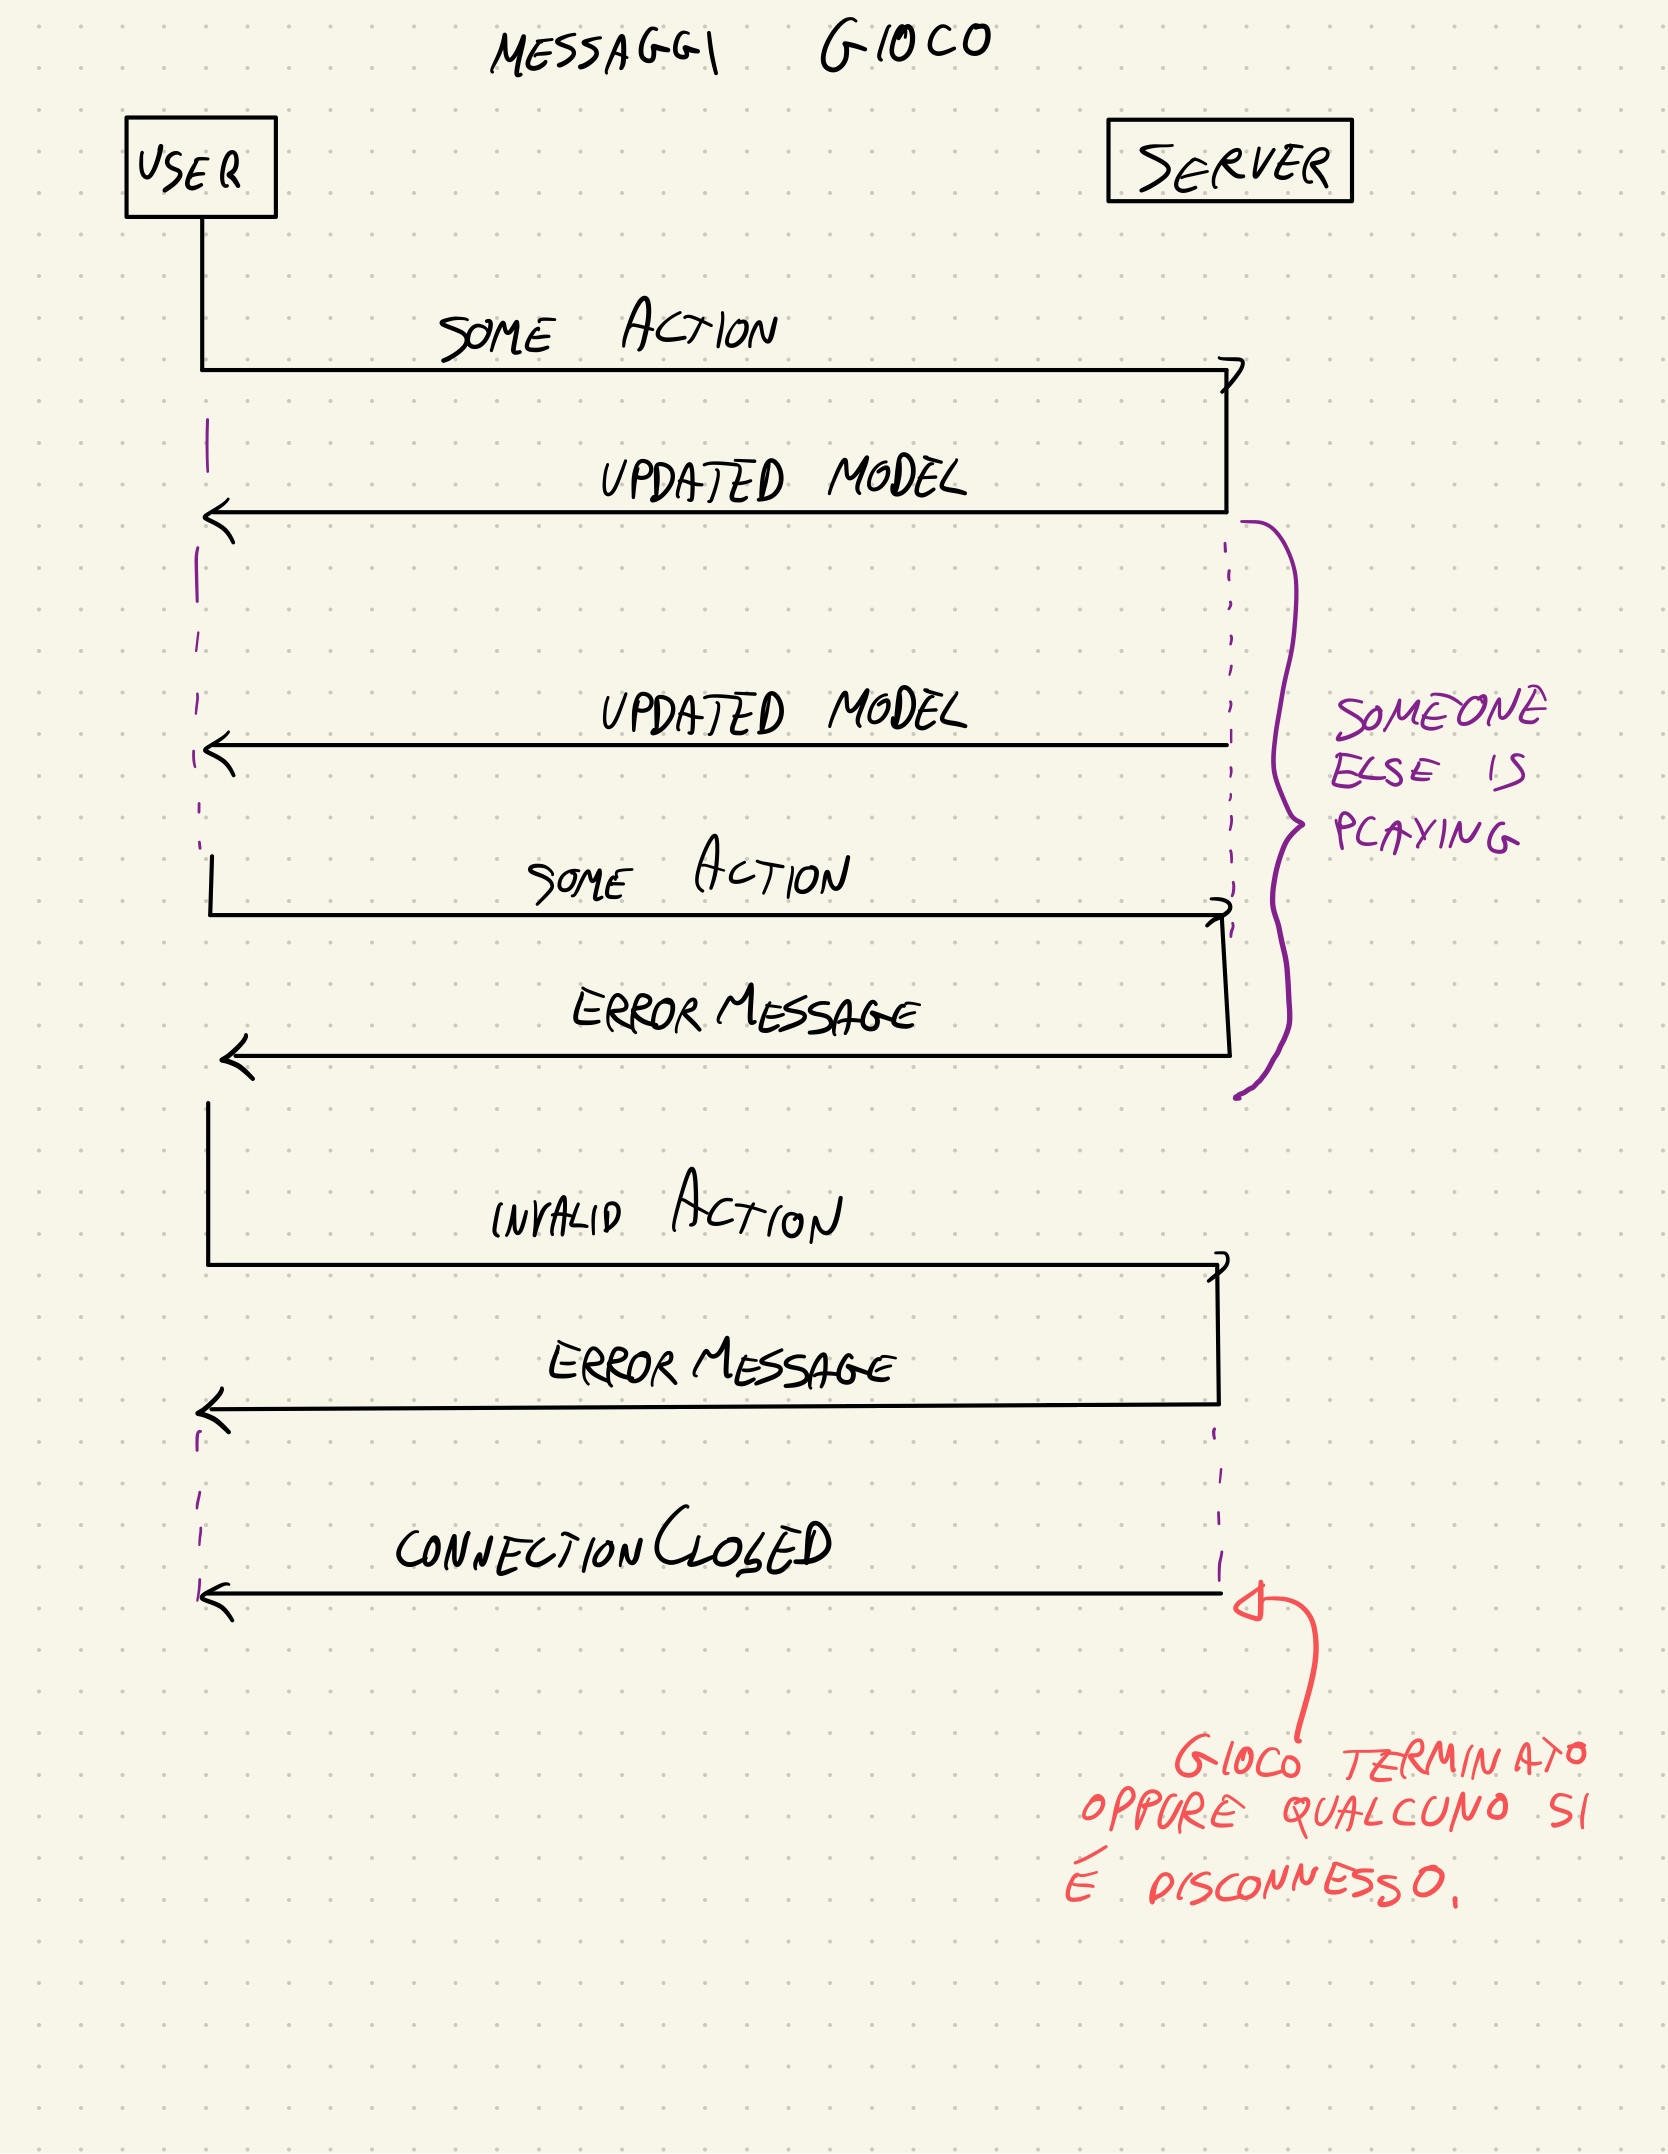 MESSAGGI GIOCO
USER
SERVER
SOME ACTION
UPDATED MODEL
UPDATED MODEL
SOMEONE
ELSE IS
PLAYING
SOME ACTION
ERROR MESSAGE
INVALID ACTION
ERROR MESSAGE
CONNECTION CLOSED
GIOCO TERMINATO
OPPURE QUALCUNO SI
É DISCONNESSO.